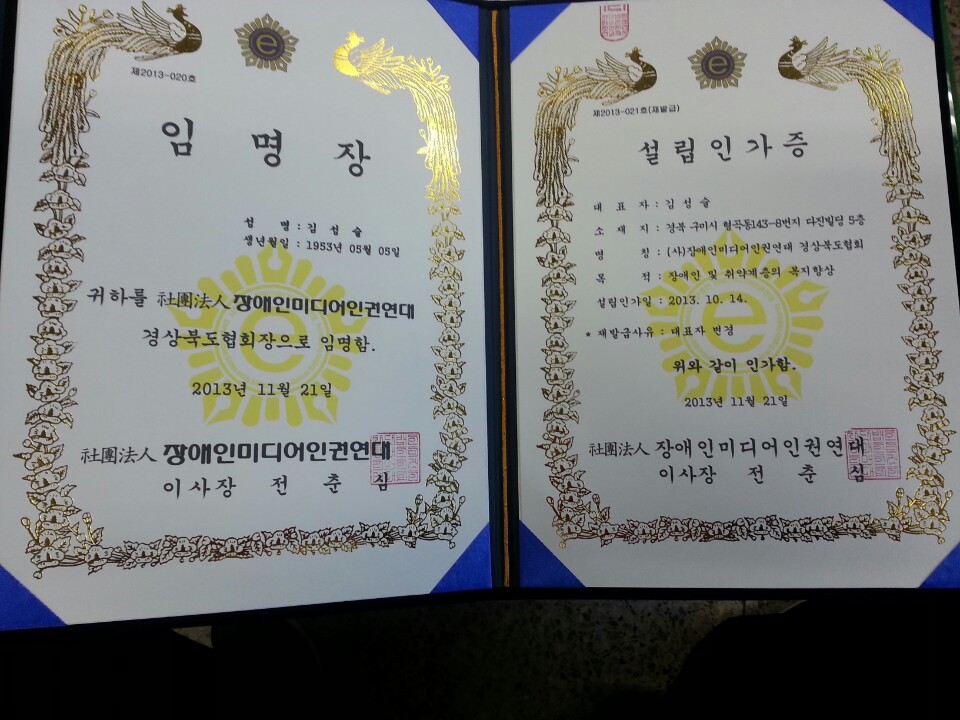 제2013-020호
임명장
성 명 : 김 섭 슬
생년월일 : 1953년 05월 05일
귀하를 社團法人 장애인미디어인권연대
경상북도협회장으로 임명함.
2013년 11월 21일
社團法人 장애인미디어인권연대
이사장 전 춘 심
제2013-021호(재발급)
설립인가증
대 표 자 : 김 섭 슬
소 재 지 : 경북 구미시 형곡동143-8번지 다진빌딩 5층
명 칭 : (사)장애인미디어인권연대 경상북도협회
목 적 : 장애인 및 취약계층의 복지향상
설립인가일 : 2013. 10. 14.
* 재발급사유 : 대표자 변경
위와 같이 인가함.
2013년 11월 21일
社團法人 장애인미디어인권연대
이사장 전 춘 심